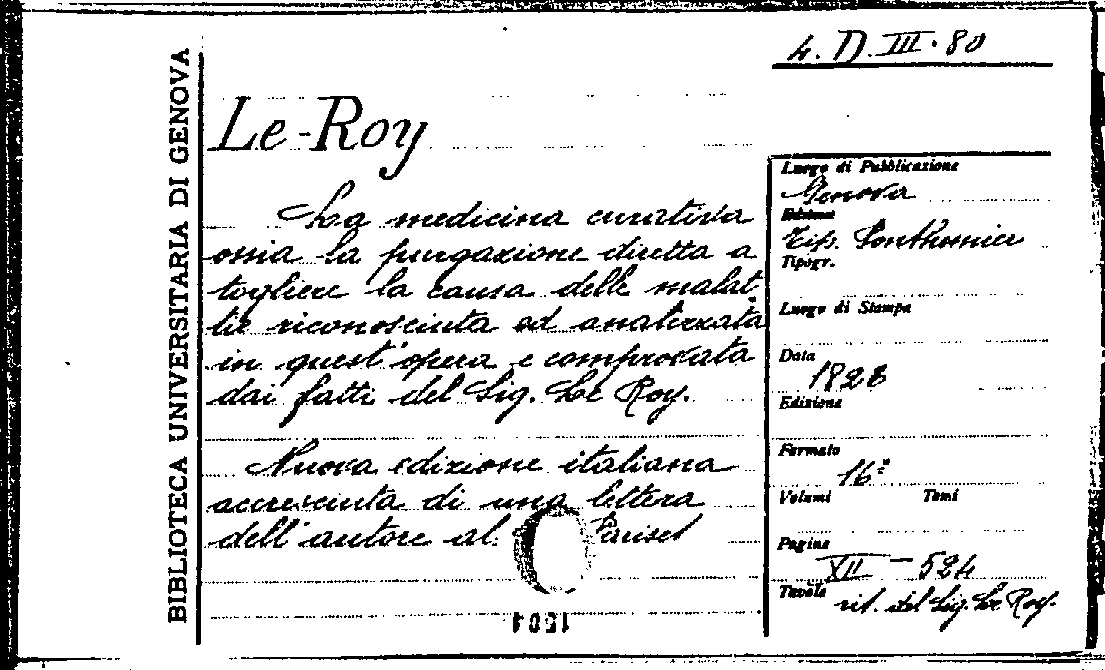 4. D. III. 80
BIBLIOTECA UNIVERSITARIA DI GENOVA
Le-Roy
La medicina curativa
ossia la purgazione diretta a
togliere la causa delle malat
tie riconosciuta ed analizzata
in quest'opera e comprovata
dai fatti del Sig. Le Roy.
Nuova edizione italiana
accresciuta di una lettera
dell'autore al Pariset
Luogo di Pubblicazione
Genova
Tip. Ponthenier
Tipogr.
Luogo di Stampa
Data
1828
Edizione
Formato
16º
Volumi Tomi
Pagine
XII - 524
Tavole
rit. del Sig. Le Roy.
1501